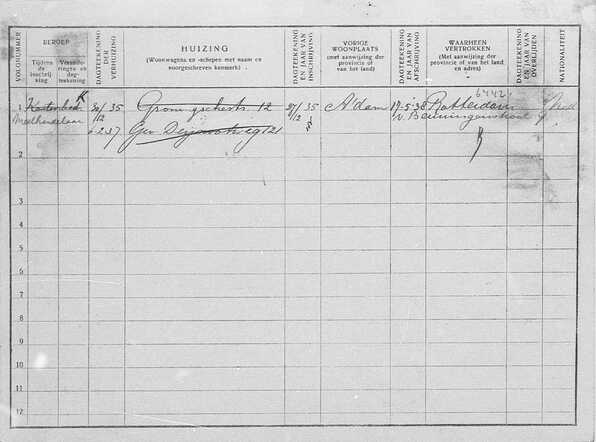 VOLGNUMMER
BEROEP
Tijdens de inschrijving
Verande-ringen en dag-teekening
DAGTEEKENING DER VERHUIZING
HUIZING
(Woonwagens en -schepen met naam en voorgeschreven kenmerk)
DAGTEEKENING EN JAAR VAN INSCHRIJVING
VORIGE WOONPLAATS
(met aanwijzing der provincie of van het land)
DAGTEEKENING EN JAAR VAN AFSCHRIJVING
WAARHEEN VERTROKKEN
(Met aanwijzing der provincie of van het land en adres)
DAGTEEKENING EN JAAR VAN OVERLIJDEN
NATIONALITEIT
1 K 30/12 35 12 27/12 35 A'dam 17-5-38 Rotterdam Ned
6 2 37 Gev Deynootweg 121 v. Beuningenstraat
2
3
4
5
6
7
8
9
10
11
12